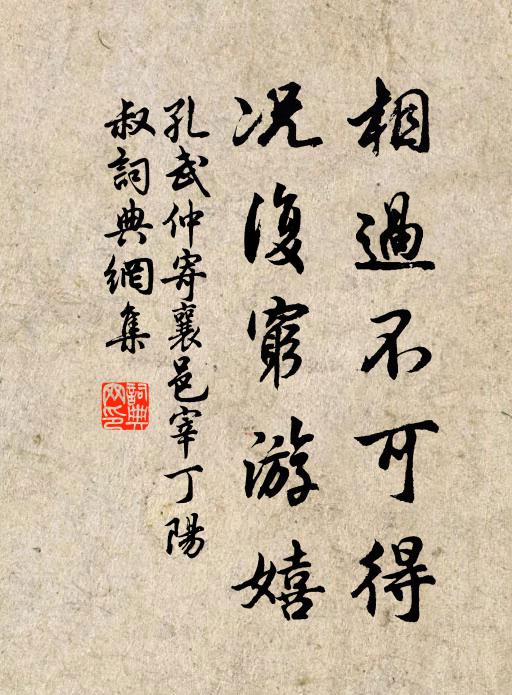 相過不可得
况復窮游嬉
孔武仲寄襄邑宰丁陽
叔詞典網集
詞典网印